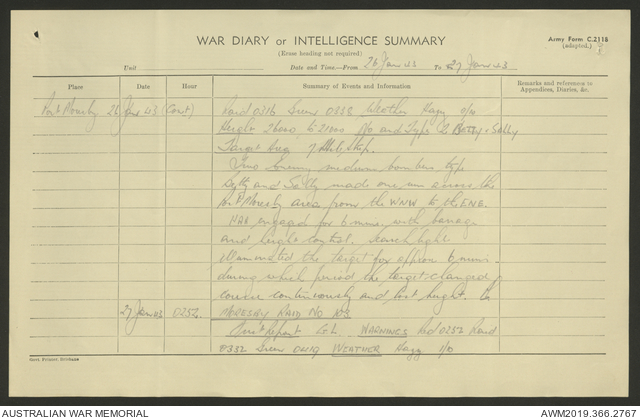 WAR DIARY or INTELLIGENCE SUMMARY
(Erase heading not required)
Army Form C.2118
(adapted.)
Unit
Date and Time—From 26 Jan 43 To 27 Jan 43
Place Date Hour Summary of Events and Information Remarks and references to Appendices, Diaries, &c.
Port Moresby 26 Jan 43 (Cont) Raid 0316 Siren 0338 Weather Hazy 0/10
Height 26000 to 21000 No and Type (2) Betty & Sally
Target Area 7 Mile Strip.
Two enemy medium bombers type
Betty and Sally made one run across the
Port Moresby area from the WNW to the ENE.
HAA engaged for 6 mins. with barrage
and height control. Search light
illuminated the target for approx 6 mins.
during which period the target changed
course continuously and lost height.
27 Jan 43 0252. MORESBY RAID NO 103
Report G.L. WARNINGS Rd 0252 Raid
0332 Siren 0419 WEATHER Hazy 1/0
Govt. Printer, Brisbane
AUSTRALIAN WAR MEMORIAL
AWM2019.366.2767